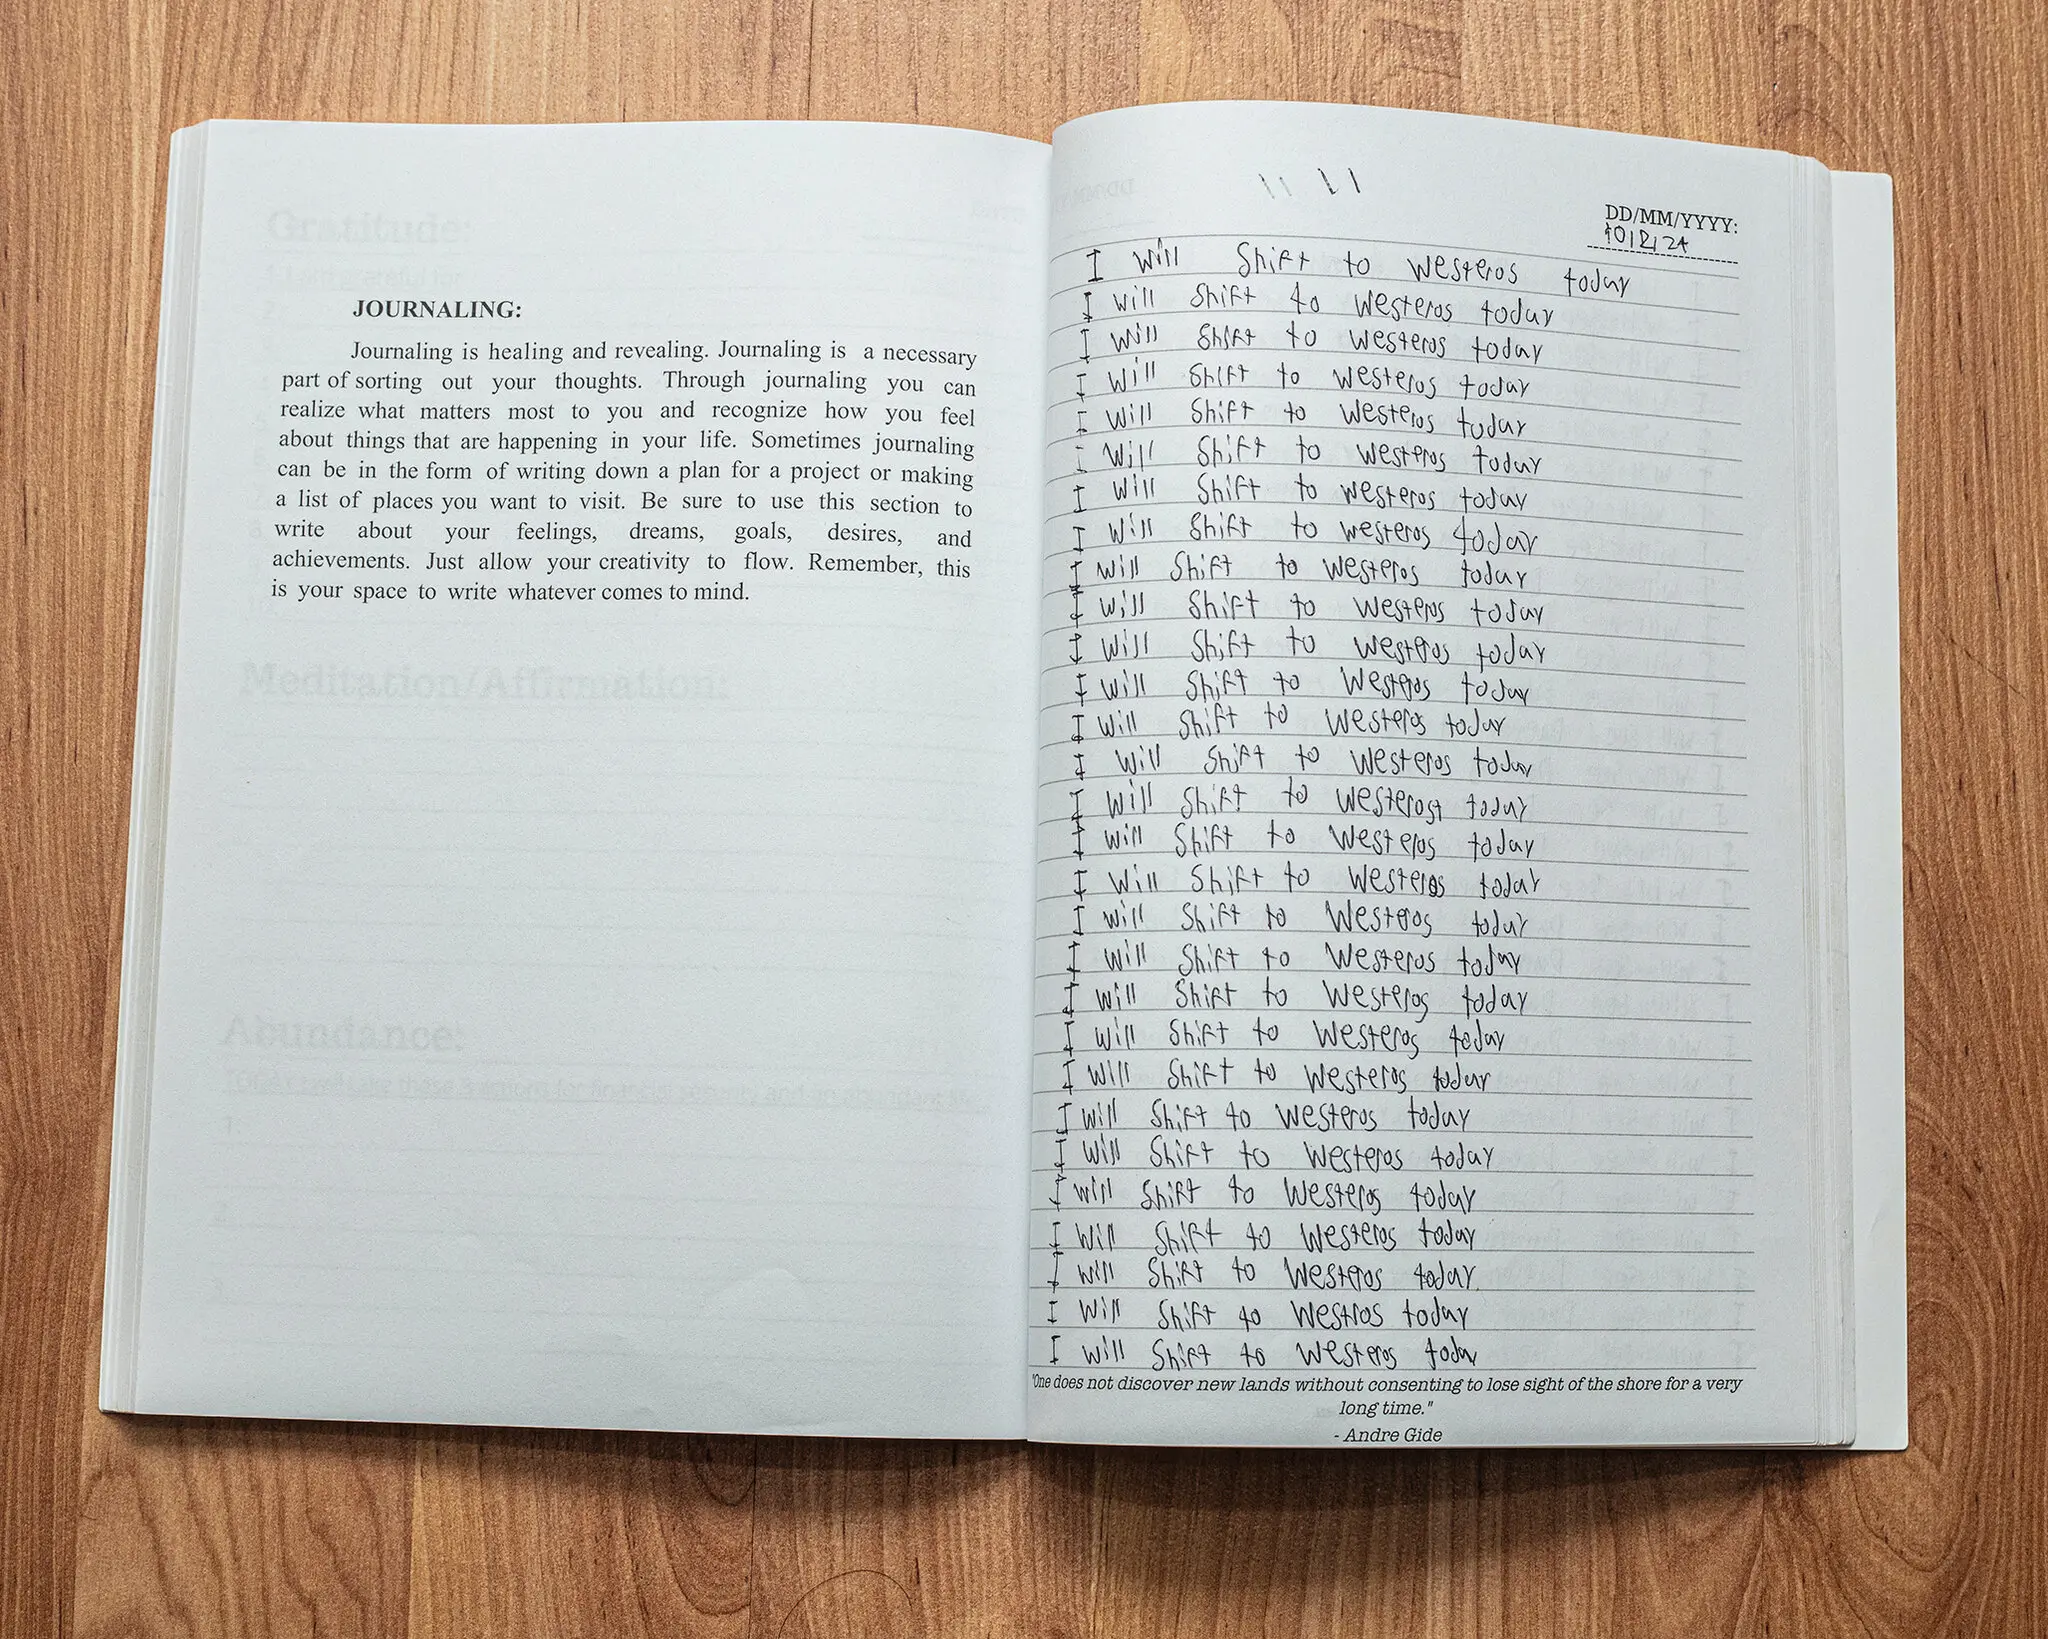 JOURNALING:
Journaling is healing and revealing. Journaling is a necessary
part of sorting out your thoughts. Through journaling you can
realize what matters most to you and recognize how you feel
about things that are happening in your life. Sometimes journaling
can be in the form of writing down a plan for a project or making
a list of places you want to visit. Be sure to use this section to
write about your feelings, dreams, goals, desires, and
achievements. Just allow your creativity to flow. Remember, this
is your space to write whatever comes to mind.
Gratitude:
Meditation/Affirmation:
Abundance:
11 11
DD/MM/YYYY:
I will Shift to Westeros today
I will Shift to Westeros today
I will Shift to Westeros today
I will Shift to Westeros today
I will Shift to Westeros today
I will Shift to Westeros today
I will Shift to Westeros today
I will Shift to Westeros today
I will Shift to Westeros today
I will Shift to Westeros today
I will Shift to Westeros today
I will Shift to Westeros today
I will Shift to Westeros today
I will Shift to Westeros today
I will Shift to Westerost today
I will Shift to Westeros today
I will Shift to Westeros today
I will Shift to Westeros today
I will Shift to Westeros today
I will Shift to Westeros today
I will Shift to Westeros today
I will Shift to Westeros today
I will Shift to Westeros today
I will Shift to Westeros today
I will Shift to Westeros today
I will Shift to Westeros today
I will Shift to Westeros today
I will Shift to Westros today
I will Shift to Westeros today
"One does not discover new lands without consenting to lose sight of the shore for a very
long time."
- Andre Gide